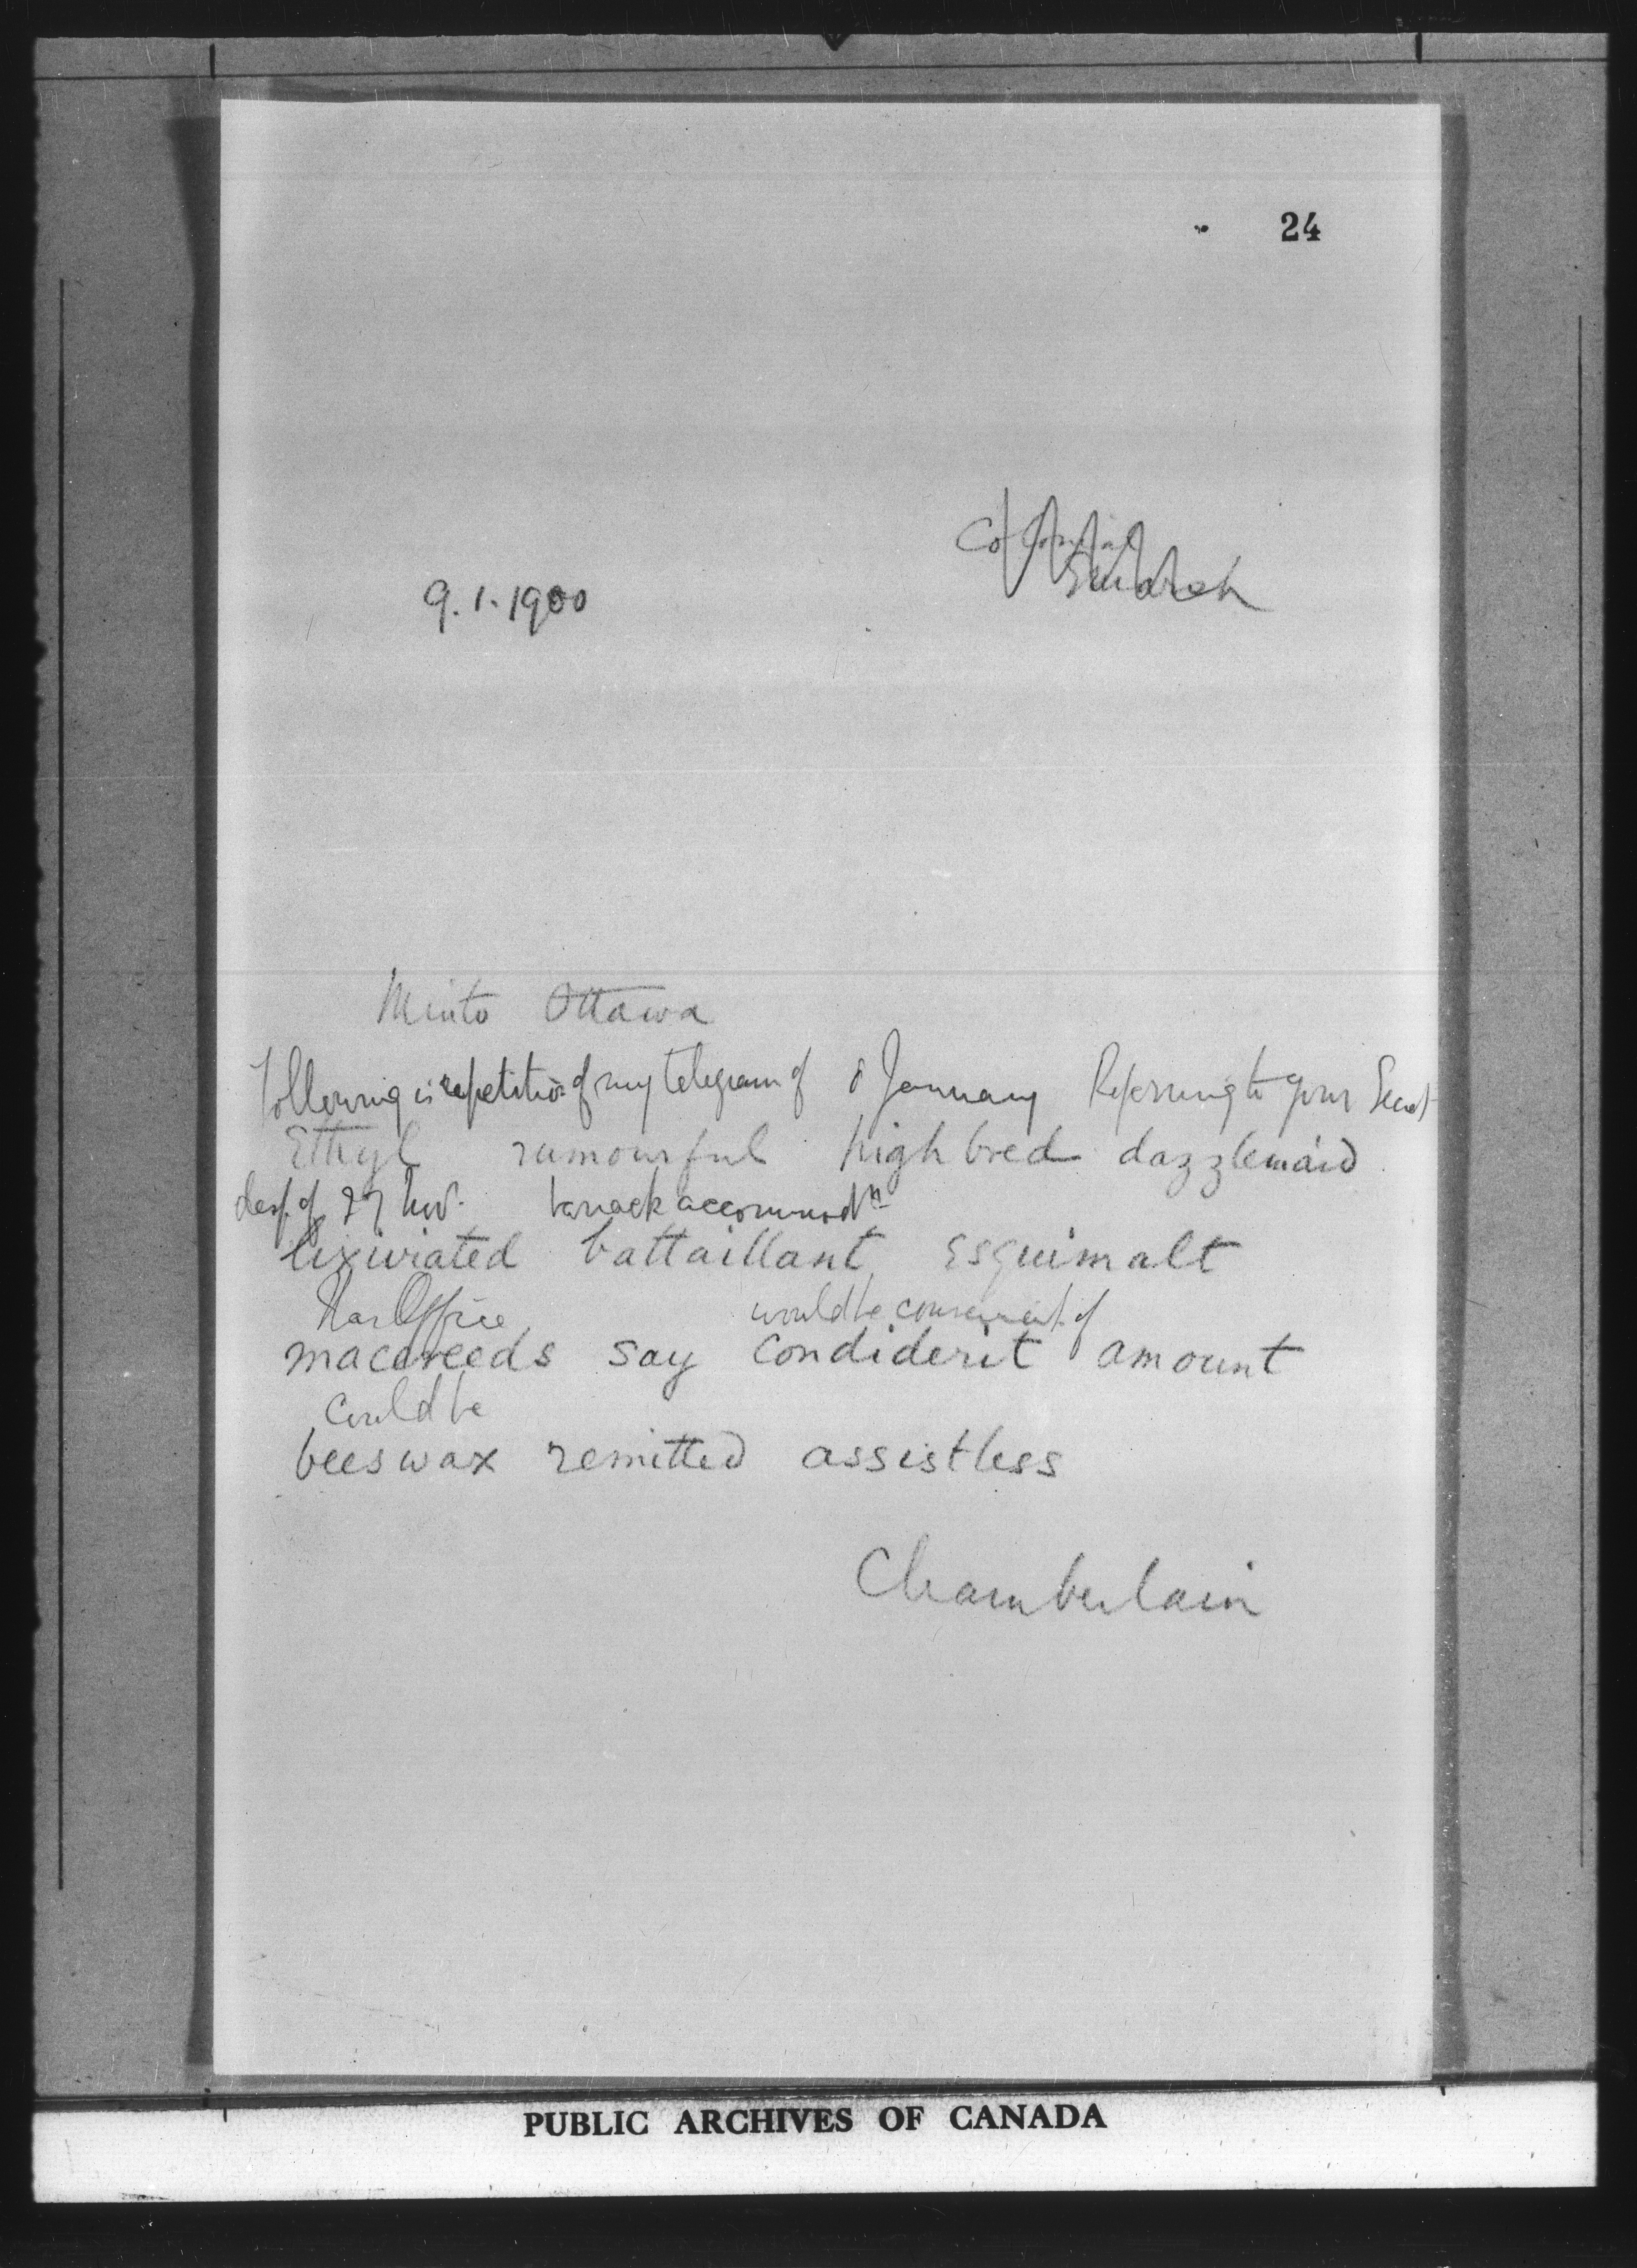 24
Colonial
9.1.1900
Minto Ottawa
Following is repetition of my telegram of 8 January Referring to your Secret
Ethyl rumourful highbred dazzlemaid
desp. of 27 Nov. barrack accommodn
lixiviated battaillant Esquimalt
War Office would be convenient if
macereeds say condiderit amount
could be
beeswax remitted assistless
Chamberlain
PUBLIC ARCHIVES OF CANADA